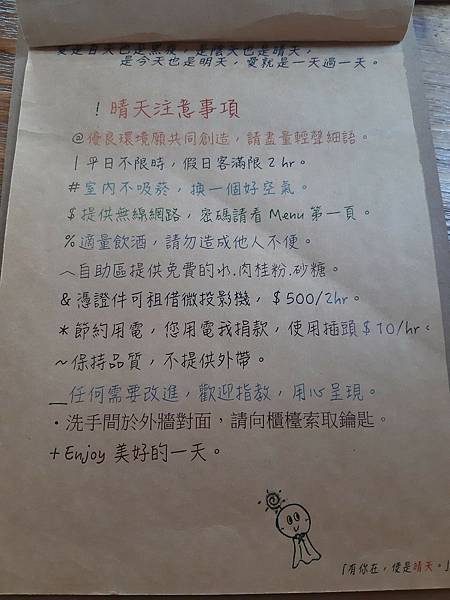 愛是白天也是黑夜，是陰天也是晴天，
是今天也是明天，愛就是一天過一天。
！晴天注意事項
@優良環境願共同創造，請盡量輕聲細語。
| 平日不限時，假日客滿限 2 hr。
#室內不吸菸，換一個好空氣。
$ 提供無線網路，密碼請看 Menu 第一頁。
%適量飲酒，請勿造成他人不便。
︿自助區提供免費的水.肉桂粉.砂糖。
& 憑證件可租借微投影機，$500/2hr。
*節約用電，您用電我捐款，使用插頭 $ 10/hr。
~保持品質，不提供外帶。
__任何需要改進，歡迎指教，用心呈現。
·洗手間於外牆對面，請向櫃檯索取鑰匙。
+ Enjoy 美好的一天。
「有你在，便是晴天。」